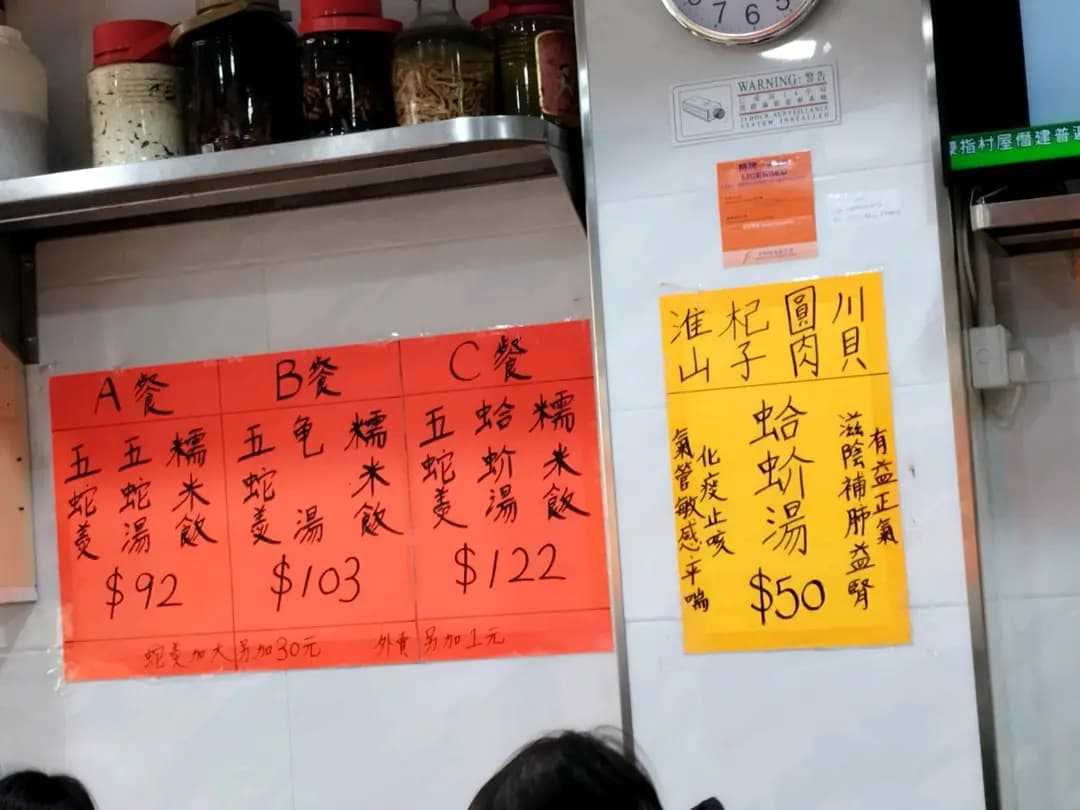 7 6 5
WARNING: 警告
24 HOUR SURVEILLANCE
SYSTEM INSTALLED
指村屋僭建普遍
LICENSED
A餐
五蛇羹
五蛇湯
糯米飯
$92
B餐
五蛇羹
龟湯
糯米飯
$103
C餐
五蛇羹
蛤蚧湯
糯米飯
$122
蛇羹加大另加30元
外賣另加1元
川貝
圓肉
杞子
淮山
蛤蚧湯
$50
有益正氣
滋陰補肺益腎
化痰止咳
氣管敏感平喘